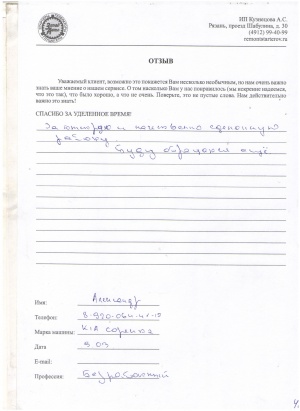 ИП Кузнецова А.С.
Рязань, проезд Шабулина, д. 30
(4912) 99-40-99
remontstarterov.ru
ОТЗЫВ
Уважаемый клиент, возможно это покажется Вам несколько необычным, но нам очень важно
знать ваше мнение о нашем сервисе. О том насколько Вам у нас понравилось (мы искренне надеемся,
что это так), что было хорошо, а что не очень. Поверьте, это не пустые слова. Нам действительно
важно это знать!
СПАСИБО ЗА УДЕЛЕННОЕ ВРЕМЯ!
За и сделанную
работу
Буду ещё
Имя: Александр
Телефон:
Марка машины: KIA соренто
Дата 9.09
E-mail:
Профессия: безработный